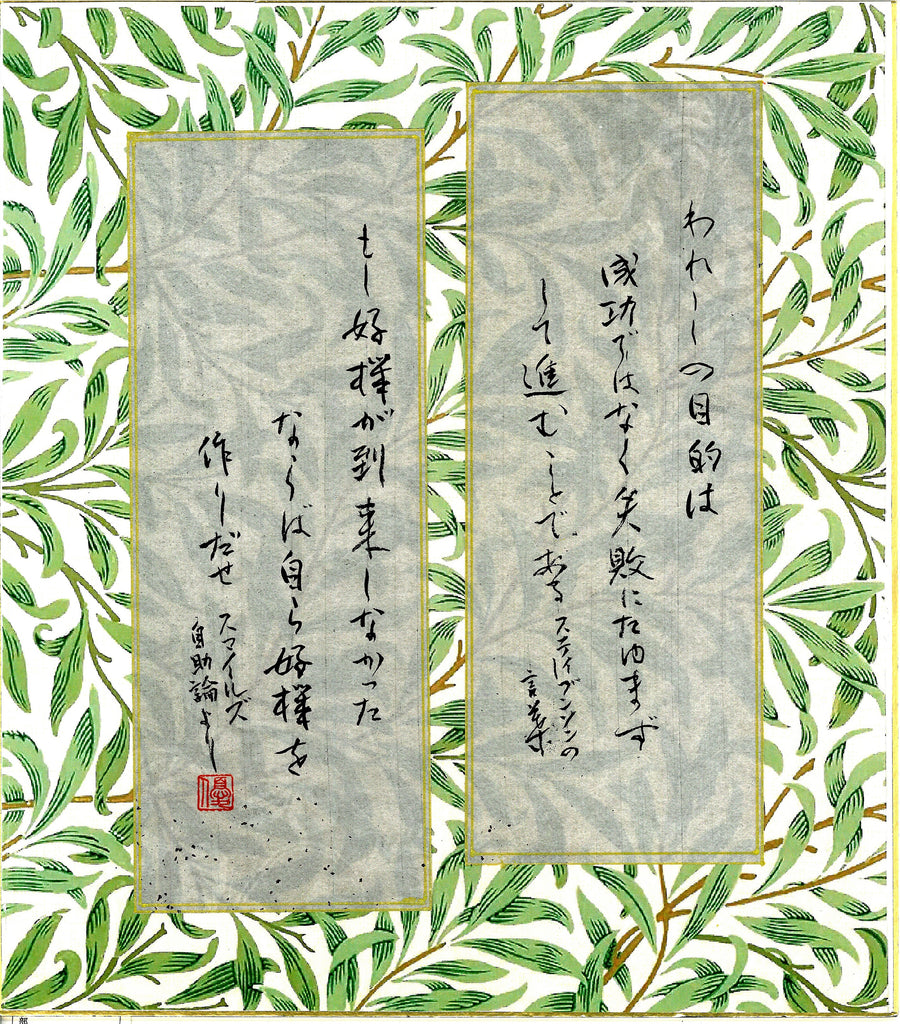 われ〱の目的は
成功ではなく失敗にたゆまず
して進むことである
スティブンソンの
言葉
もし好機が到来しなかった
ならば自ら好機を
作りだせ
スマイルズ
自助論より
優
部